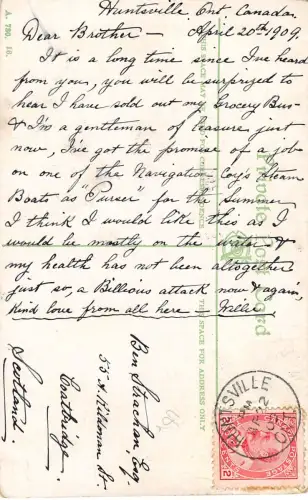 Huntsville, Ont. Canada.
Dear Brother – April 20th 1909.
It is a long time since I've heard
from you, you will be surprized to
hear I have sold out my Grocery Bus-
& I'm a gentleman of leasure just
now, I've got the promise of a job
on one of the Navigation Coy's Steam
Boats as "Purser" for the Summer
I think I would like this as I
would be mostly on the water &
my health has not been altogether
just so, a Bellious attack now & again
Kind love from all here – Willie
Ben Strachan, Esq
53 A. St.
Coatbridge.
Scotland.
A. 780. 50.
THE SPACE FOR ADDRESS ONLY
Private Post Card
HUNTSVILLE
2
2